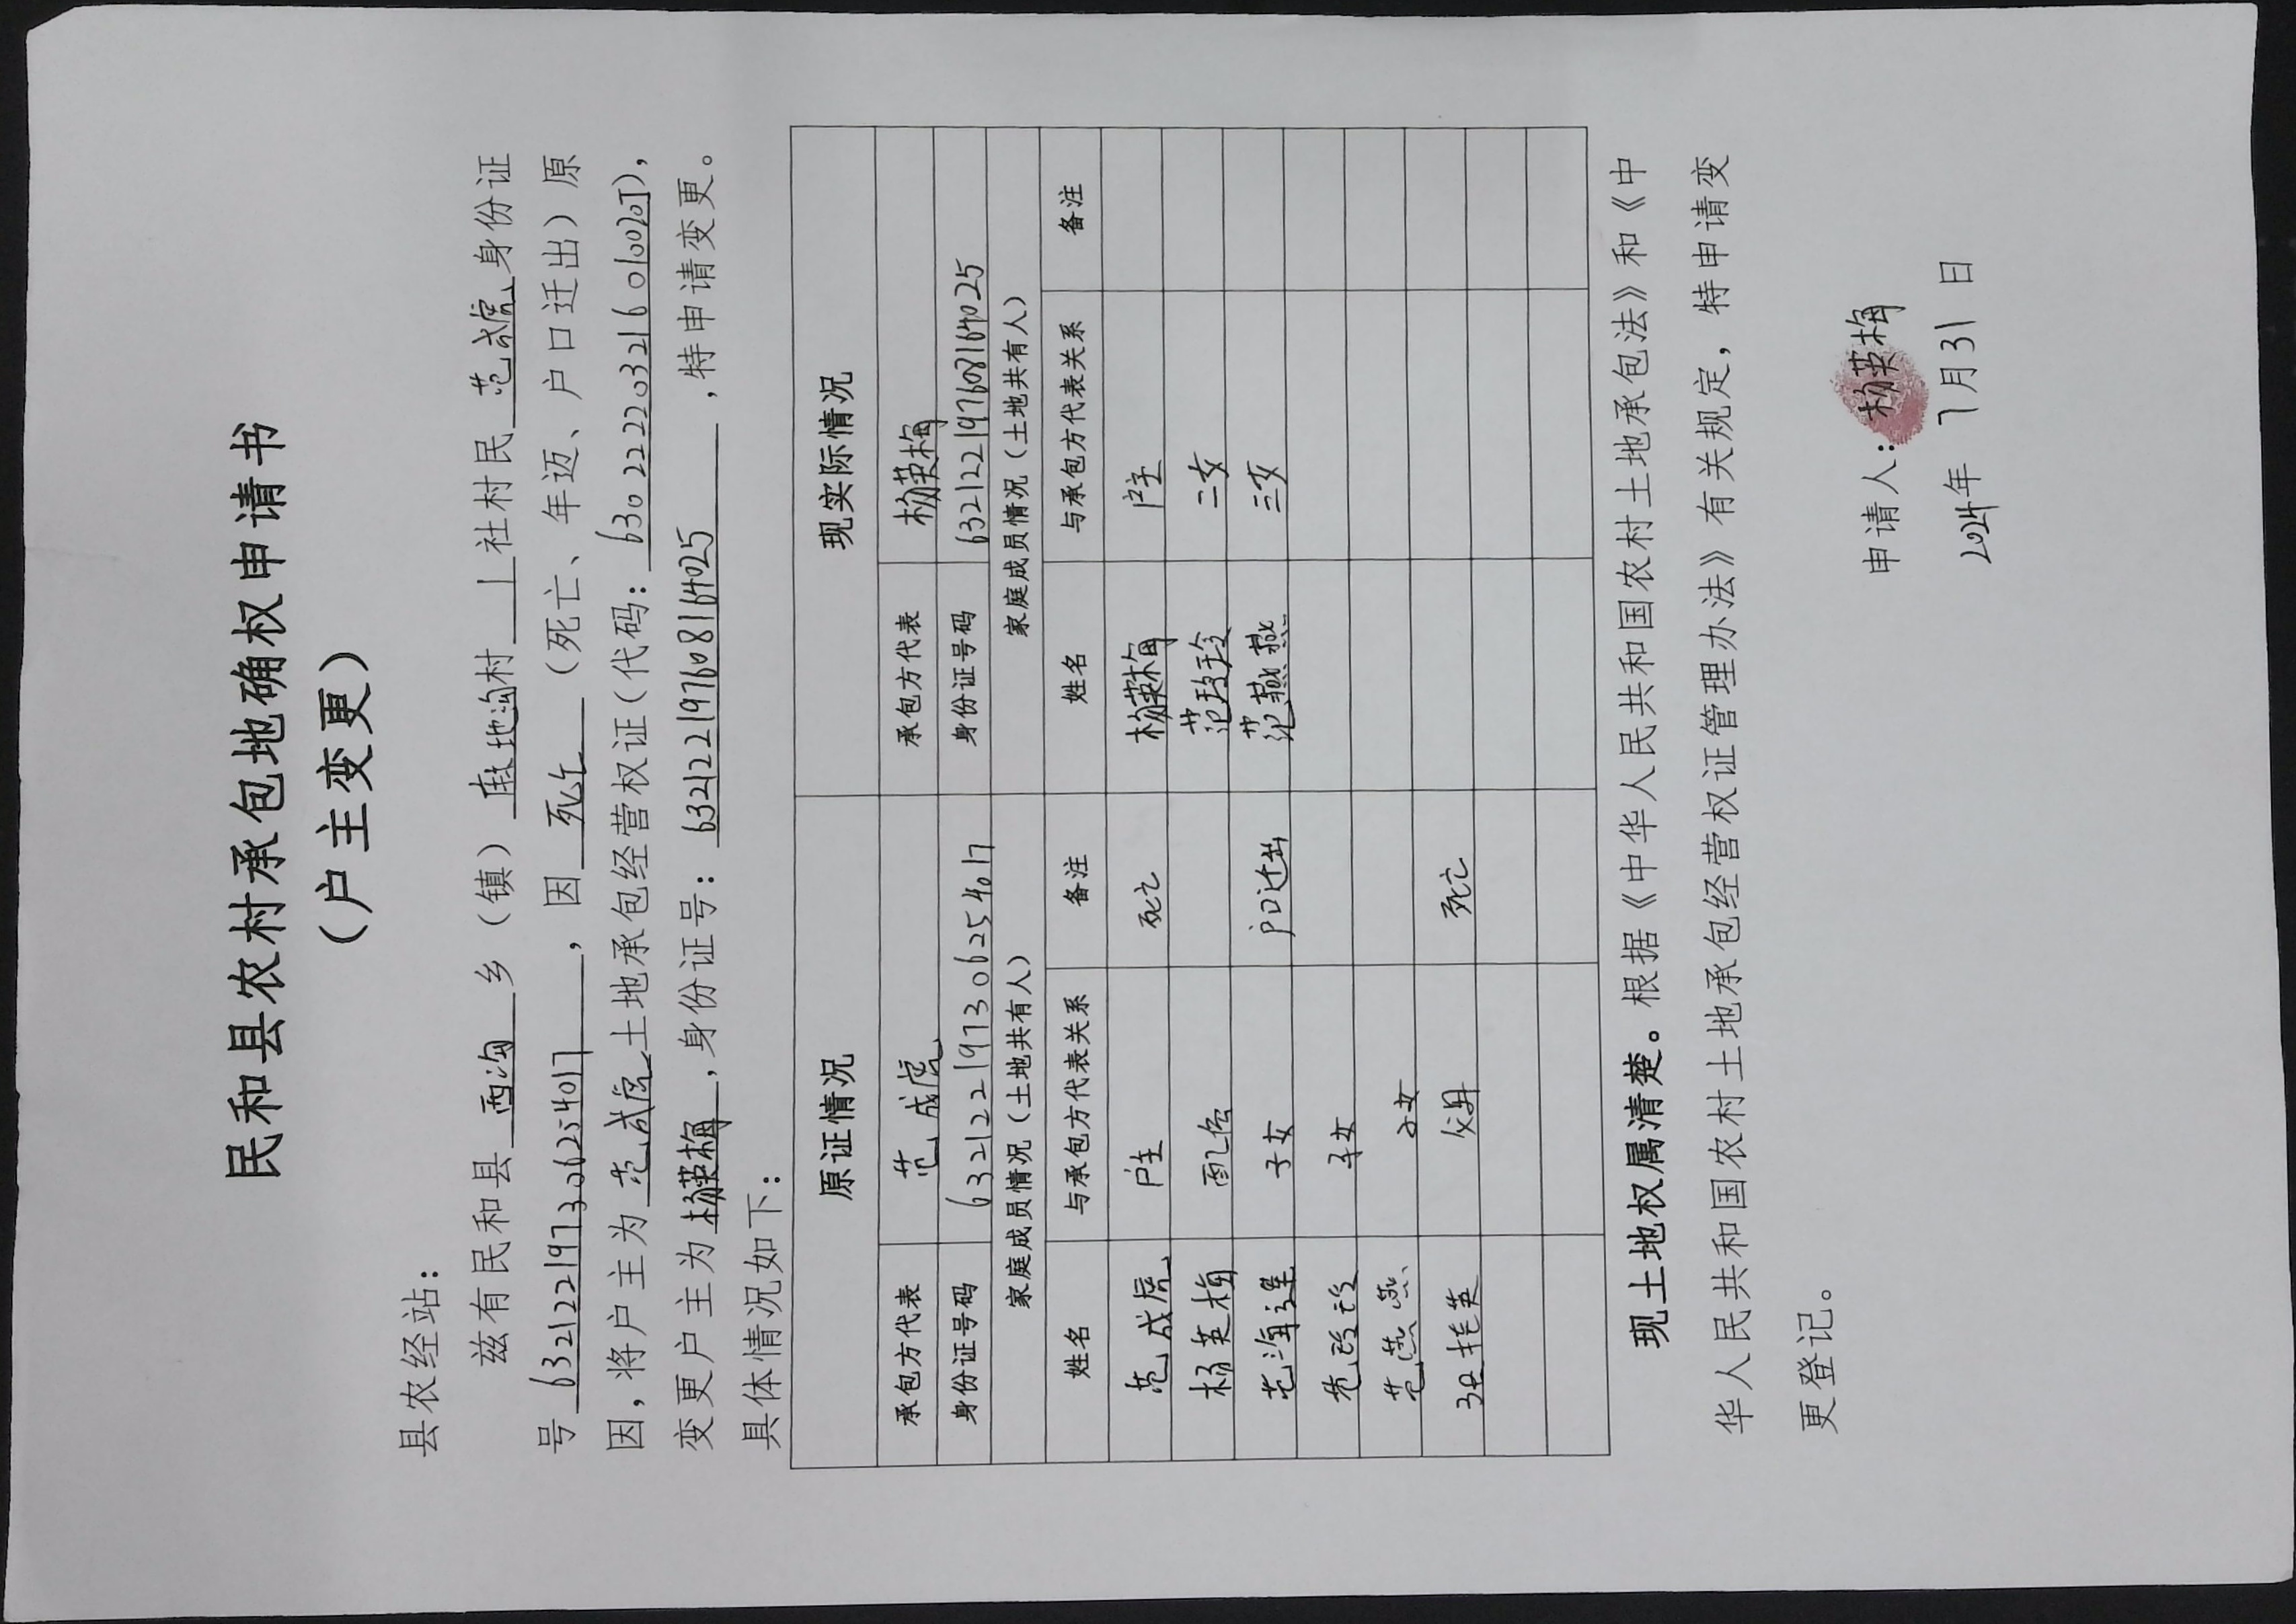 民和县农村承包地确权申请书
（户主变更）
县农经站：
兹有民和县 西沟 乡（镇） 麻地沟村 1 社村民 范成虎 身份证
号 632122197306254017 ，因 死亡 （死亡、年迈、户口迁出）原
因，将户主为 范成虎 土地承包经营权证（代码： ），
变更户主为 杨英梅 ，身份证号： 632122197608164025 ，特申请变更。
具体情况如下：
原证情况 现实际情况
承包方代表 范成虎 承包方代表 杨英梅
身份证号码 632122197306254017 身份证号码 632122197608164025
家庭成员情况（土地共有人） 家庭成员情况（土地共有人）
姓名 与承包方代表关系 备注 姓名 与承包方代表关系 备注
范成虎 户主 死亡 杨英梅 户主
杨英梅 配偶 范玲玲 二女
范海莲 子女 户口迁出 范燕燕 三女
范玲玲 子女
范燕燕 子女
英 父母 死亡
现土地权属清楚。根据《中华人民共和国农村土地承包法》和《中
华人民共和国农村土地承包经营权证管理办法》有关规定，特申请变
更登记。
申请人：杨英梅
2024年 7月31 日